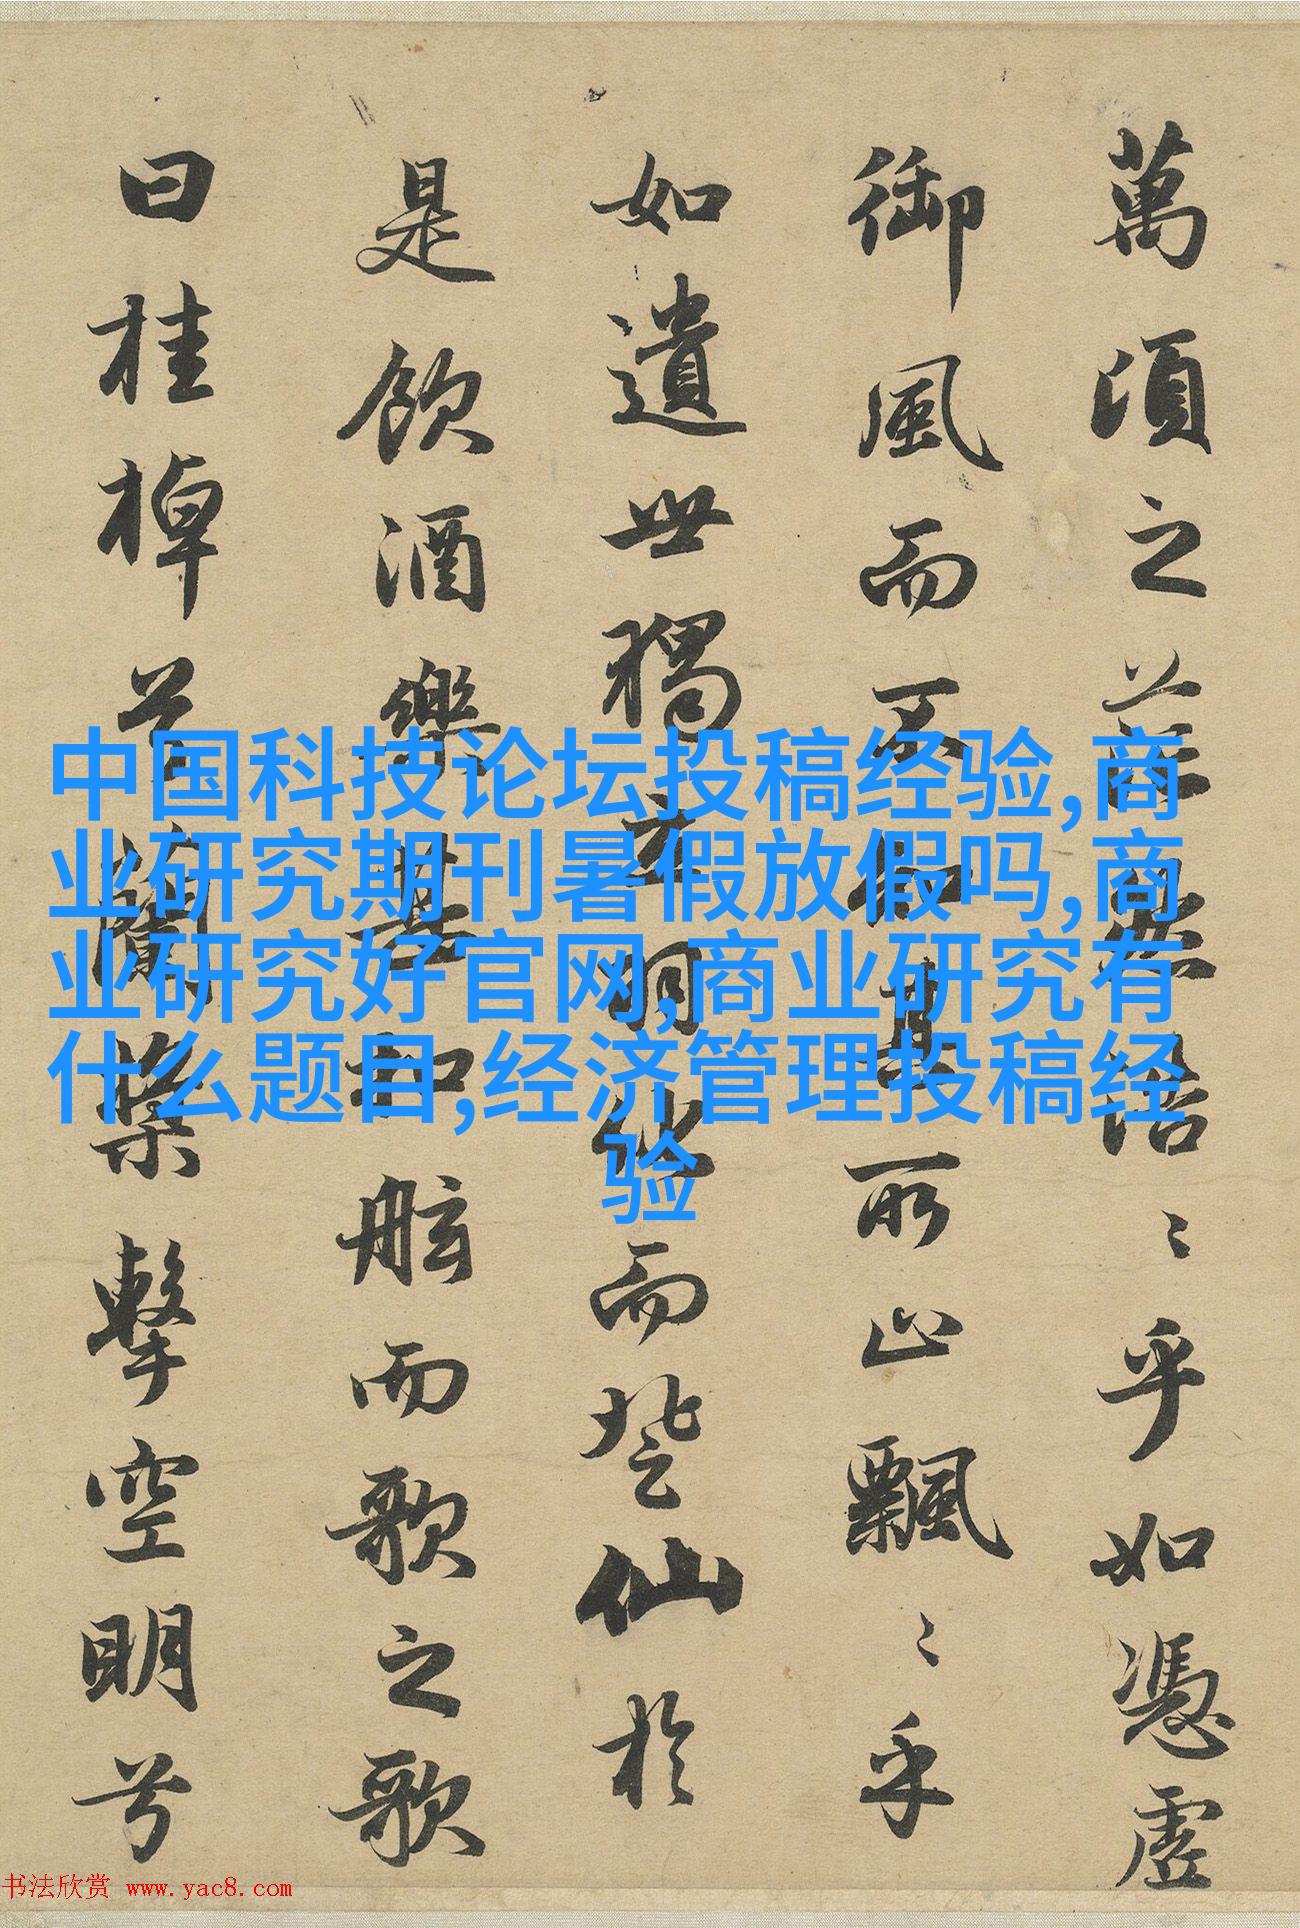 萬頃之茫然浩〻乎如憑虛
御風而不知其所止飄〻乎
如遺世獨立羽化而登仙於
是飲酒樂甚扣舷而歌之歌
曰桂棹兮蘭槳擊空明兮
中国科技论坛投稿经验,商
业研究期刊暑假放假吗,商
业研究好官网,商业研究有
什么题目,经济管理投稿经
验
书法欣赏 www.yac8.com